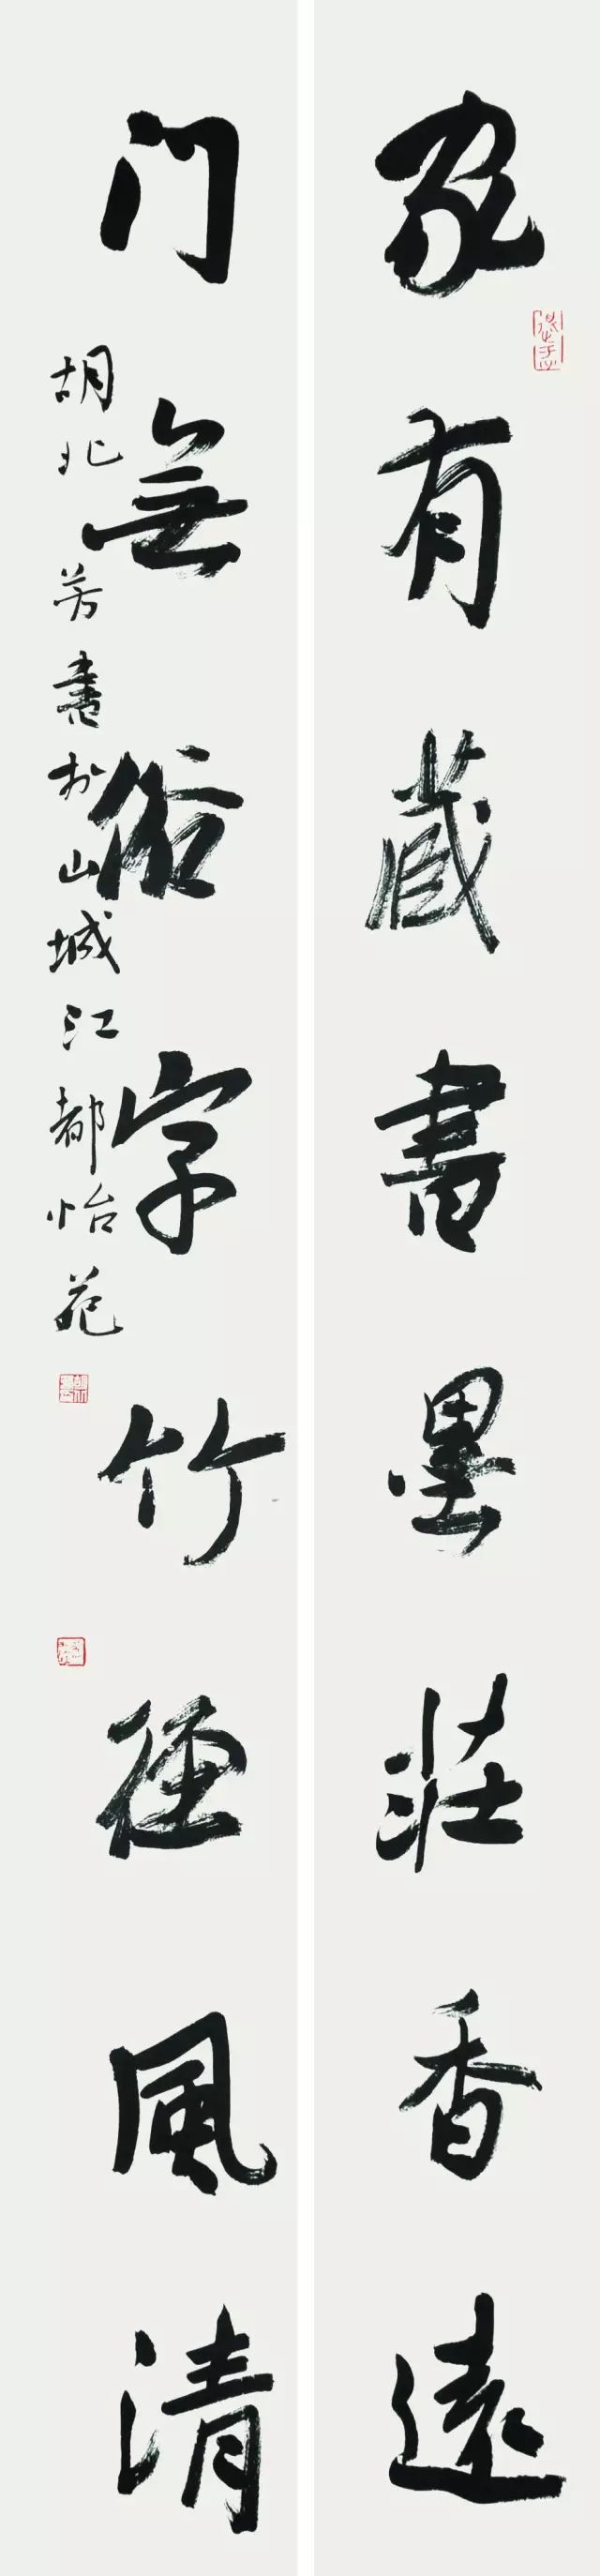 家有藏書墨莊香遠
門無俗字竹徑風清
胡北芳書於山城江都怡苑